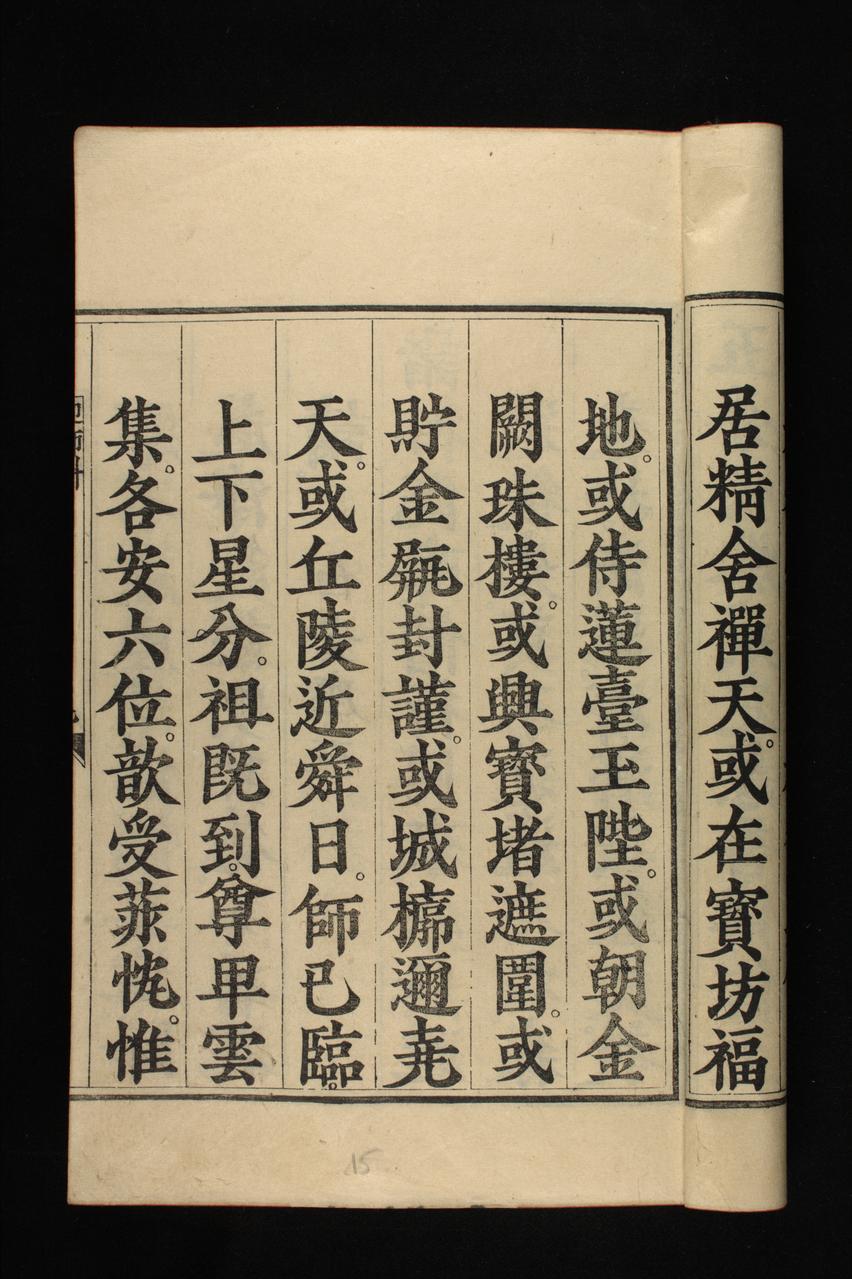 居精舍禪天。或在寶坊福
地。或侍蓮臺玉陛。或朝金
闕珠樓。或興寶堵遮圍。或
貯金瓶封謹。或城邇堯
天。或丘陵近舜日。師已臨。
上下星分。祖既到。尊卑雲
集。各安六位。歆受菲忱。惟
15